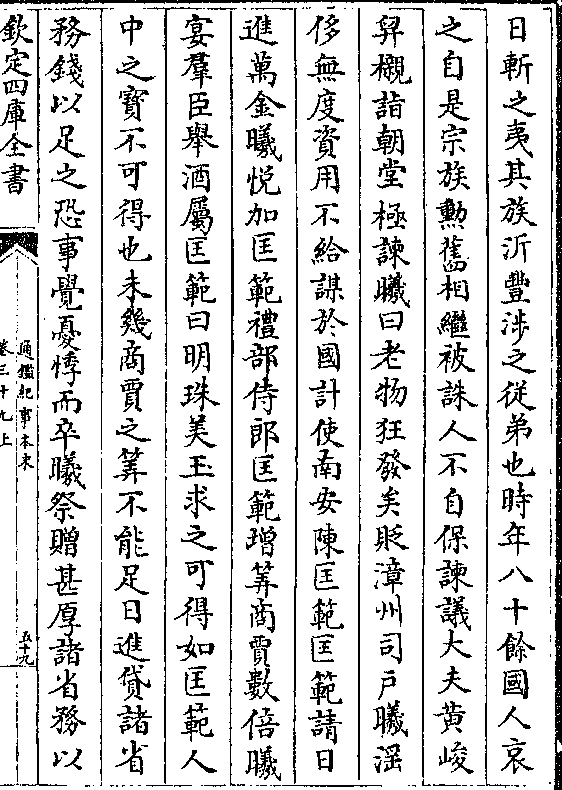 日斬之夷其族沂豐涉之從弟也時年八十餘國人哀
之自是宗族勲舊相繼被誅人不自保諫議大夫黄峻
舁櫬詣朝堂極諫曦曰老物狂發矣貶漳州司戸曦滛
侈無度資用不給謀於國計使南安陳匡範匡範請日
進萬金曦悦加匡範禮部侍郎匡範増筭商賈數倍曦
宴羣臣舉酒屬匡範曰明珠美玉求之可得如匡範人
中之寳不可得也未幾商賈之筭不能足日進貸諸省
務錢以足之恐事覺憂悸而卒曦祭贈甚厚諸省務以
欽定四庫全書
通鑑紀事本末
卷三十九上
五十九